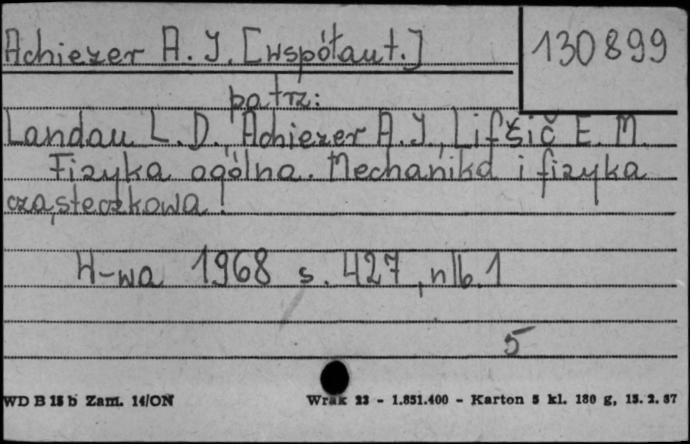 Achiezer A. I. [współaut.]
130899
patrz:
Landau L. D., Achiezer A. I., Lifšic E. M.
Fizyka ogólna. Mechanika i fizyka
cząsteczkowa.
W-wa 1968 s. 427, nlb. 1
5
WD B 15 b Zam. 14/ON
Wrak 23 - 1.851.400 - Karton 5 kl. 180 g, 15. 2. 67